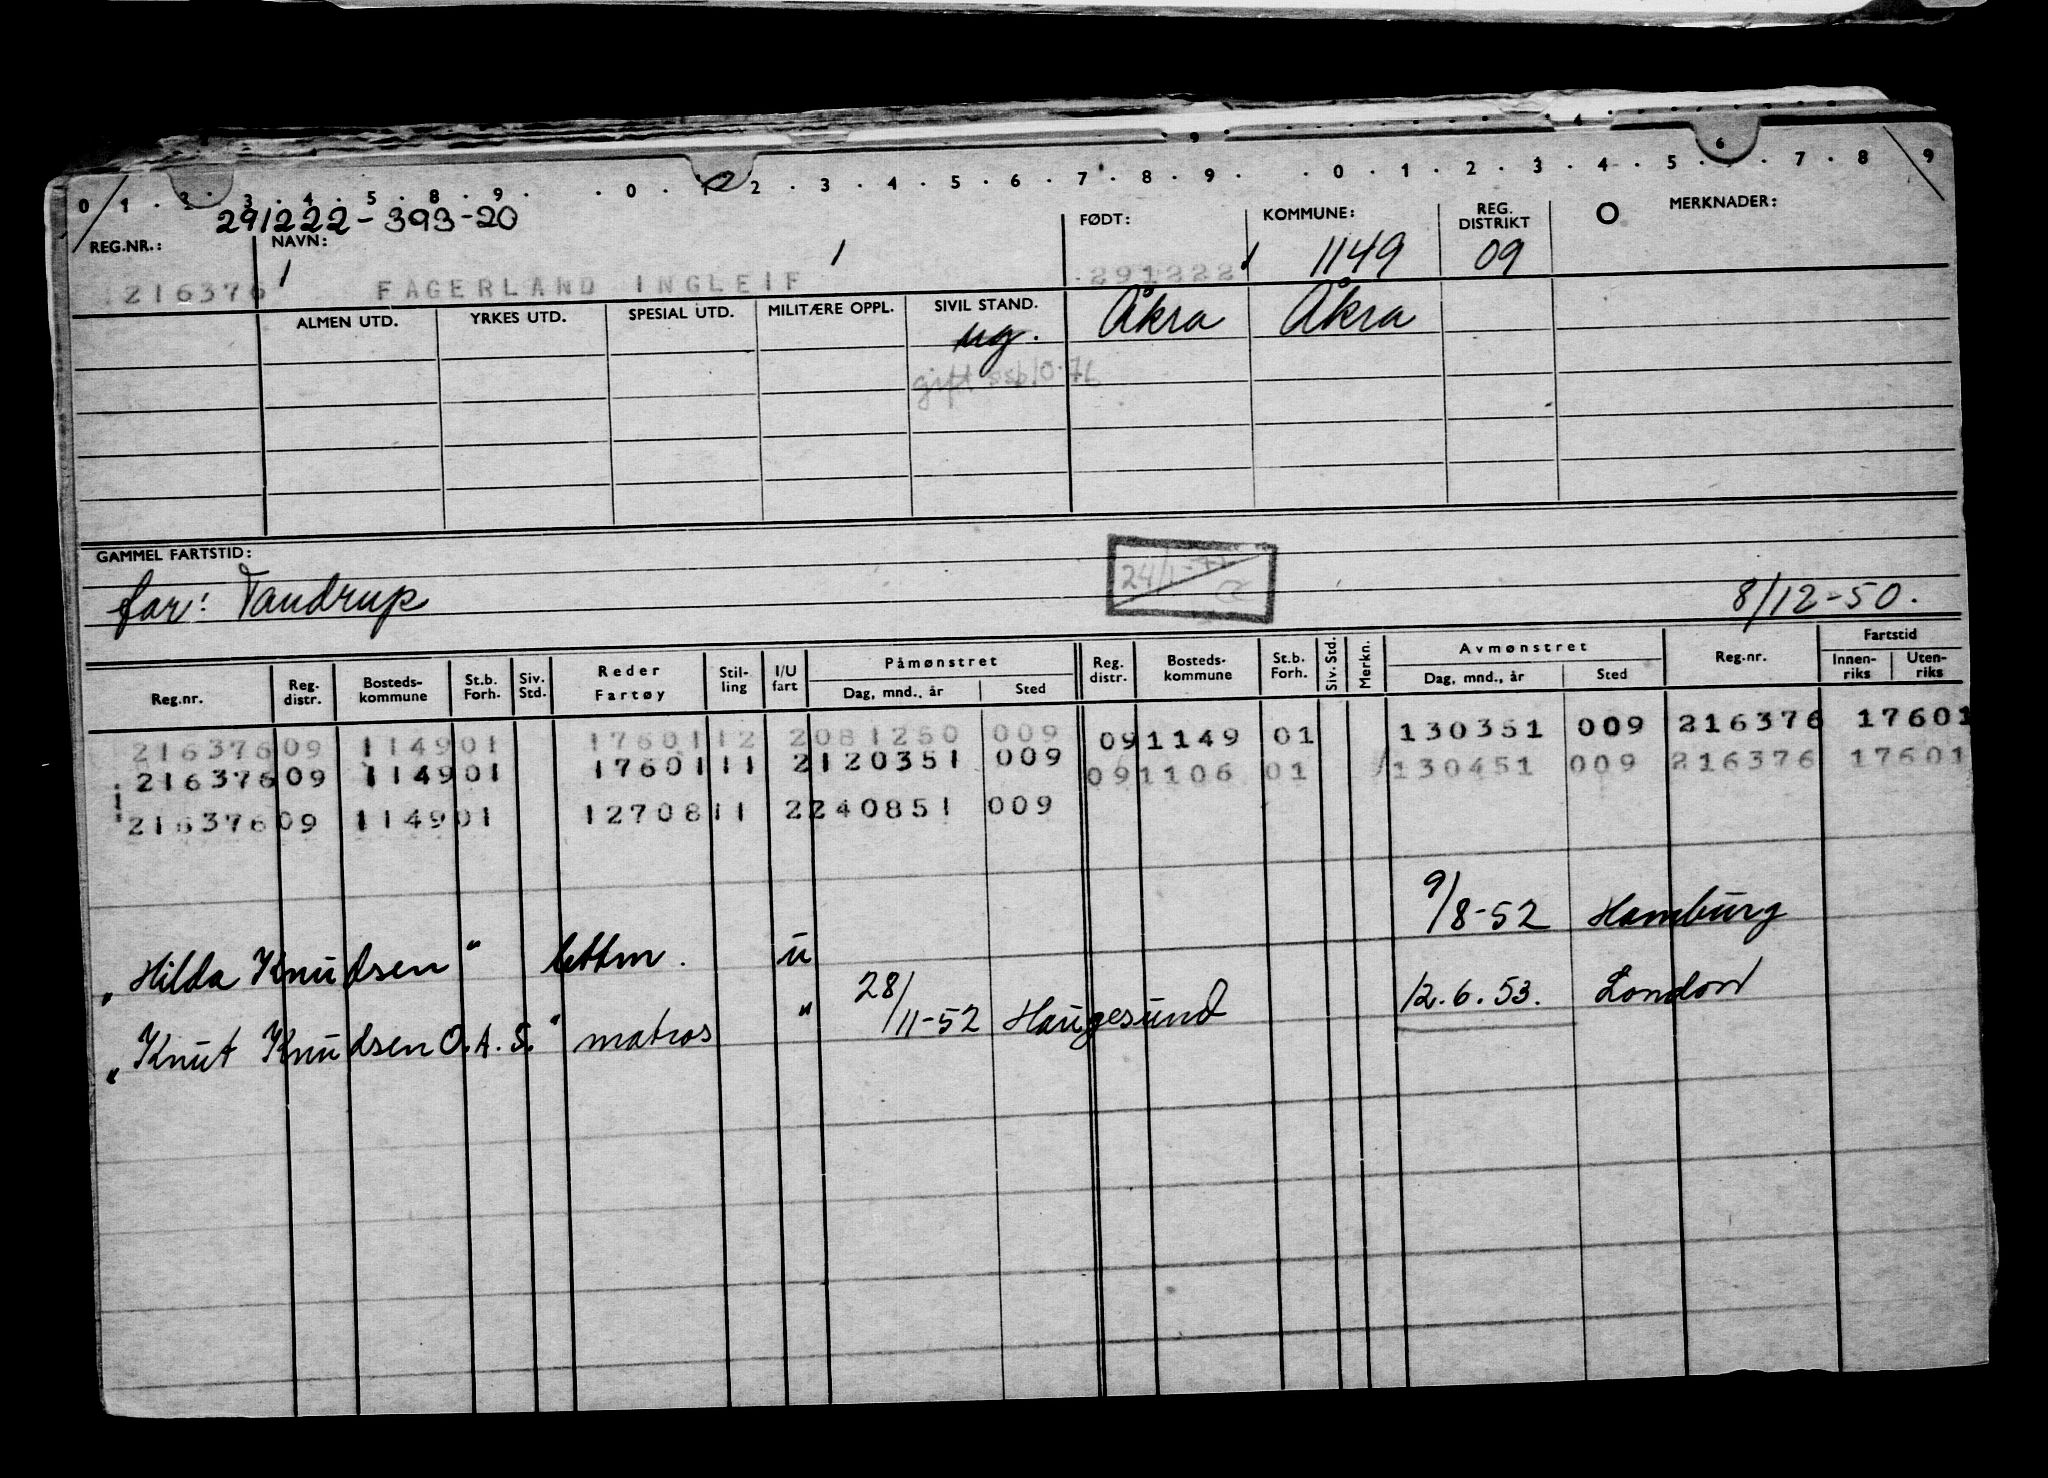 0 1 . 2 . 3 . 4 . 5 . 8 . 9 . . 0 . 1 . 2 . 3 . 4 . 5 . 6 . 7 . 8 . 9 . . 0 . 1 . 2 . 3 . 4 . 5 . 6 . 7 . 8 9
291222-393-20
REG.NR.: NAVN: FØDT: KOMMUNE: REG. DISTRIKT O MERKNADER:
216376 FAGERLAND INGLEIF 291222 1149 09
ALMEN UTD. YRKES UTD. SPESIAL UTD. MILITÆRE OPPL. SIVIL STAND. Åkra Åkra
ug.
gift
GAMMEL FARTSTID:
far: Tandrup 8/12-50.
Reg.nr. Reg. distr. Bosteds-kommune St.b. Forh. Siv. Std. Reder Fartøy Stil-ling I/U fart Påmønstret Dag, mnd., år Sted Reg. distr. Bosteds-kommune St.b. Forh. Siv. Std. Merkn. Avmønstret Dag, mnd., år Sted Reg.nr. Fartstid Innen-riks Uten-riks
216376 09 1149 01 17601 12 2 081250 009 09 1149 01 130351 009 216376 17601
216376 09 1149 01 17601 11 2 120351 009 09 1106 01 130451 009 216376 17601
216376 09 1149 01 12708 11 2 240851 009
9/8-52 Hamburg
„Hilda Knudsen" lettm. u
„Knut Knudsen O.A.S." matros " 28/11-52 Haugesund 12.6.53. London